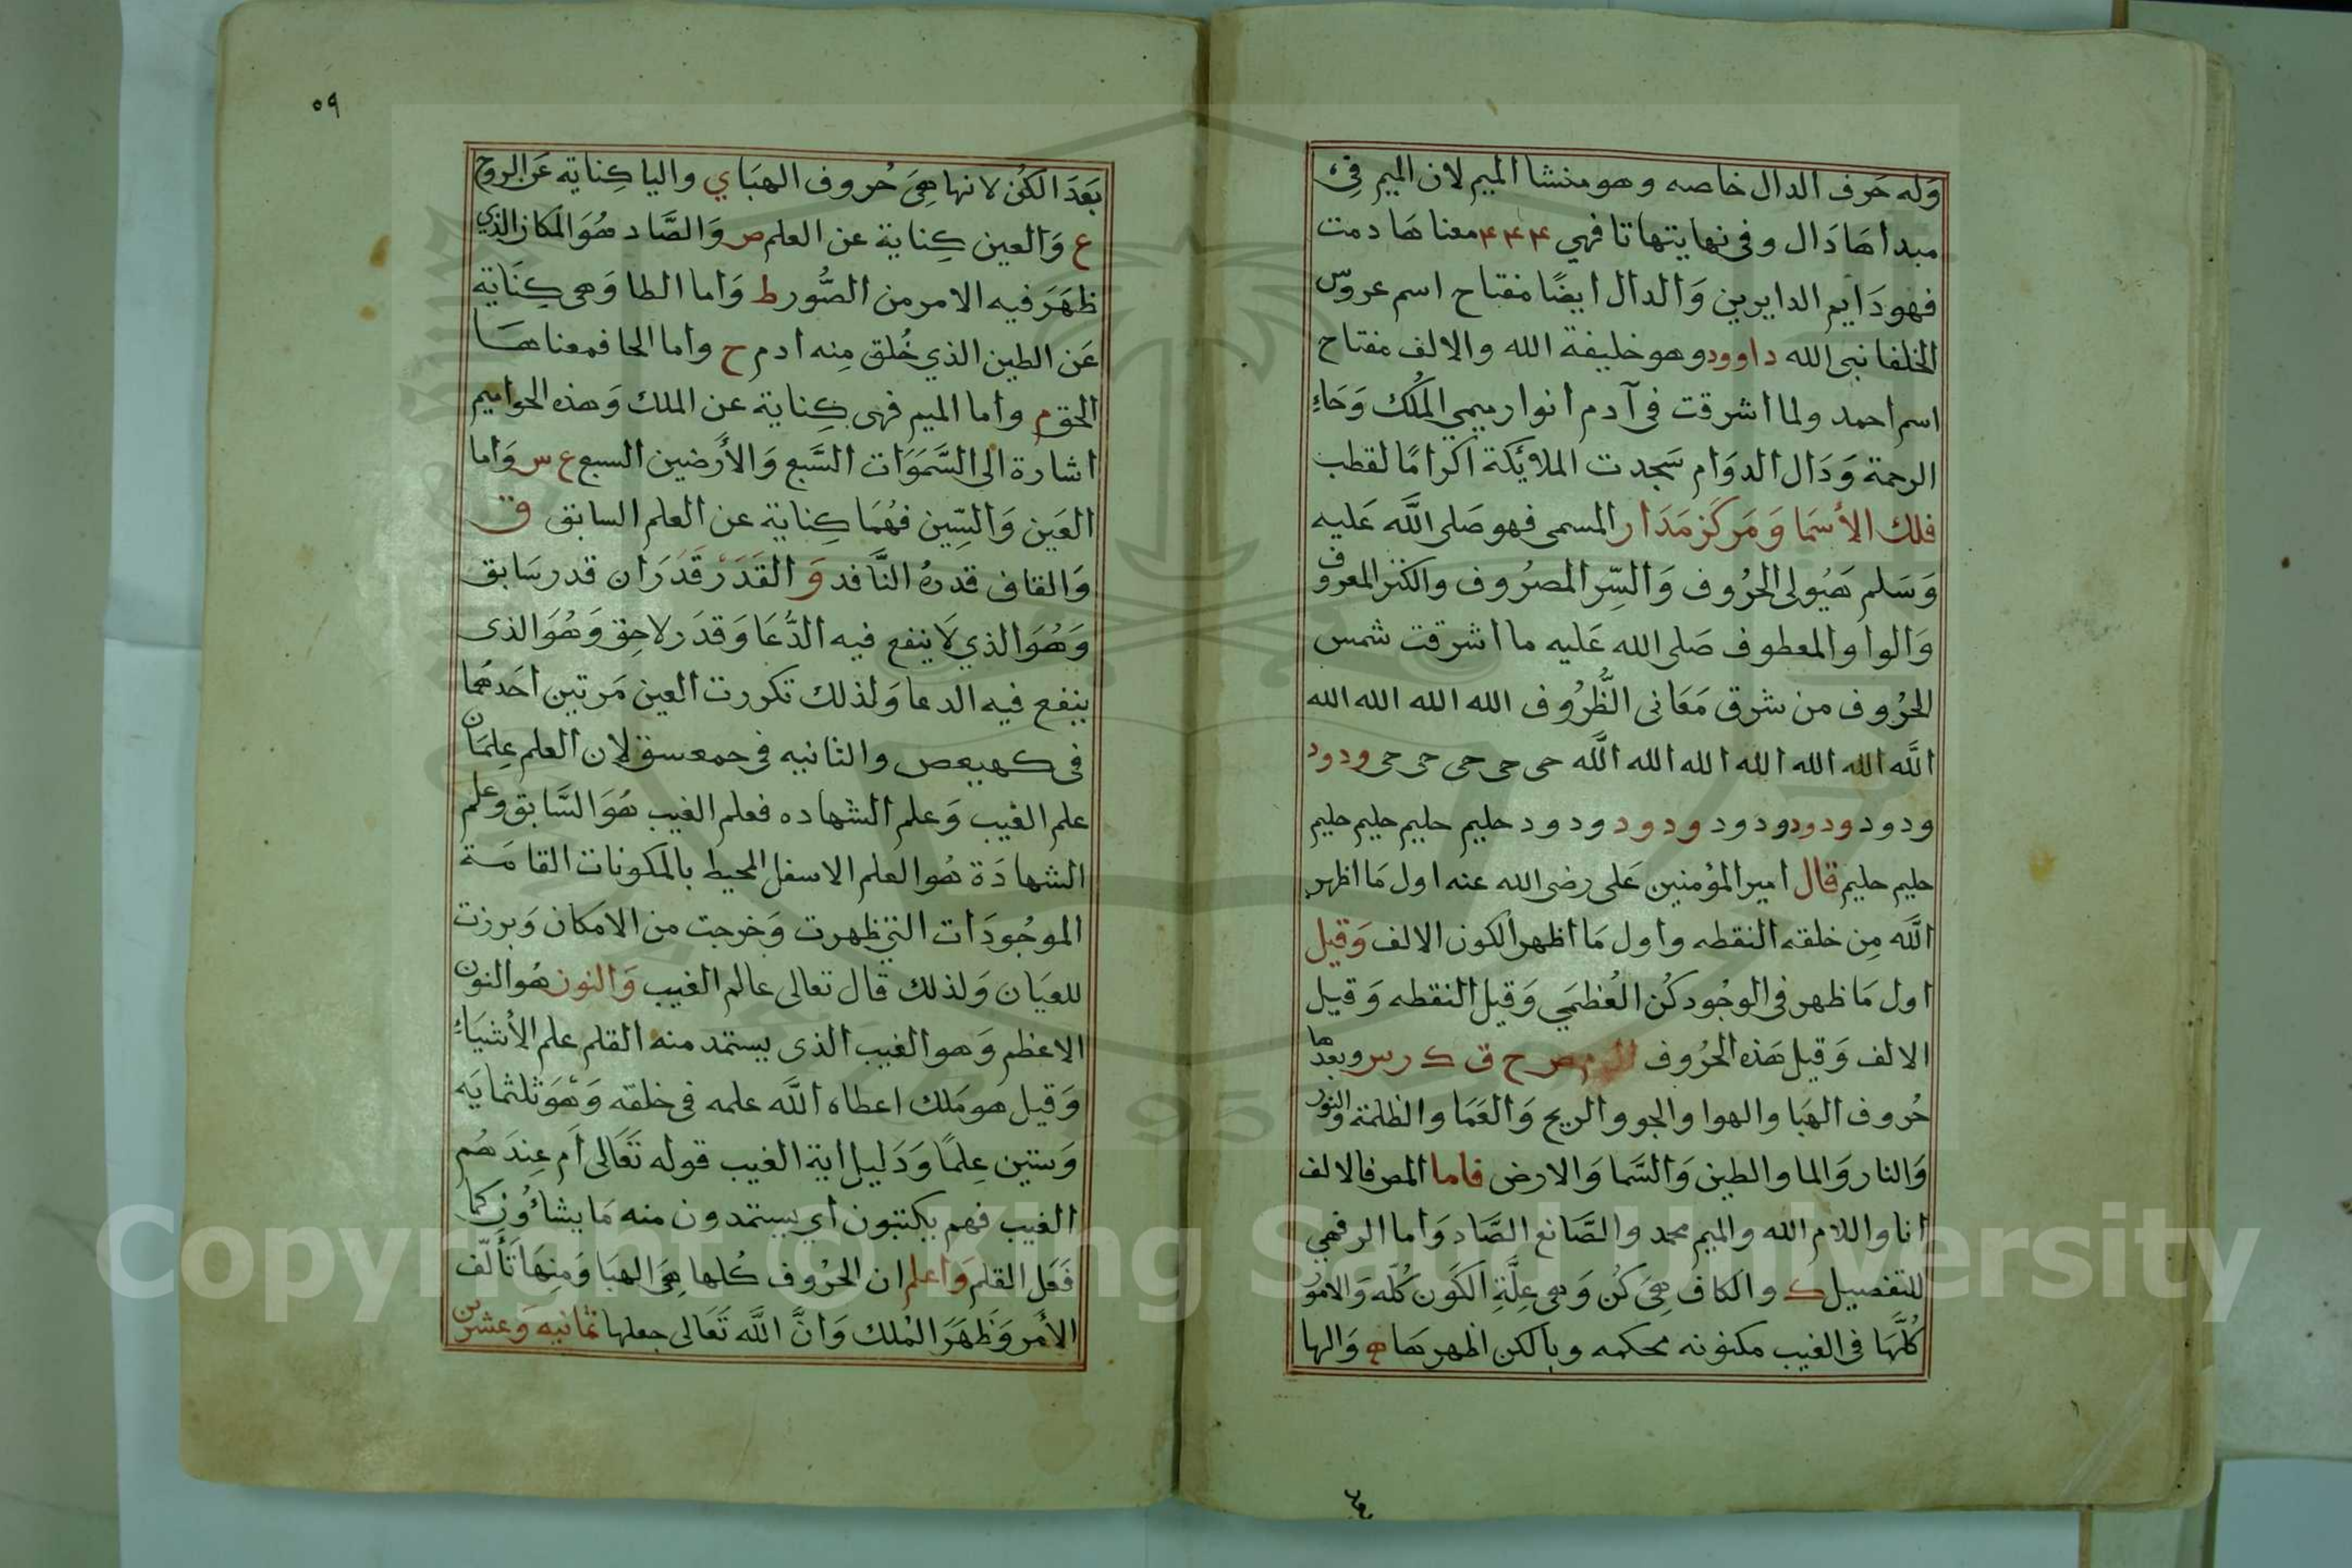 وَله حَرف الدال خاصه وهو منشا الميم لان الميم فى
مبداهَا دَال وفى نهايتها تا فهي ۴ ۴ ۴ معناهَا دمت
فهو دَايم الدايرين وَالدال ايضًا مفتاح اسم عروس
الخلفا نبى الله داوود وهو خليفة الله والالف مفتاح
اسم احمد ولما اشرقت فى آدم انوار ميمي المُلك وَحَاءِ
الرحمة وَدَال الدوَام سَجدت الملائِكة اكرامًا لقطب
فلك الأسمَا وَمَركز مَدَار المسمى فهو صَلى اللَّه عَليه
وَسَلم هَيُولى الحرُوف وَالسِّر المصرُوف والكنز المعروف
وَالواو المعطوف صَلى الله عَليه ما اشرقت شمس
الحرُوف من شرق مَعَانى الظُّرُوف الله الله الله الله
اللَّه الله الله الله الله الله اللَّه حى حى حى حى حى ودود
ودود ودود ودود ودود ودود ودود حليم حليم حليم حليم حليم
حليم حليم قال امير المؤمنين عَلى رضى الله عنه اول مَا اظهر
اللَّه مِن خلقه النقطه واول مَا اظهر الكون الالف وَقيل
اول مَا ظهر فى الوجُود كُن العُظمَي وَقيل النقطه وَقيل
الالف وَقيل هَذه الحرُوف ال م ص ح ق ك ر س وبعدها
حُروف الهَبا والهوا والجو والريح وَالعَمَا والظلمة والنور
وَالنار وَالما والطين وَالسَّما وَالارض فاما المص فالالف
انا واللام الله والميم محمد والصَّانع الصَّاد وَاما الر فهي
للتفصيل ك والكاف هِىَ كُن وَهى عِلَّةِ الكَون كُلّه وَالامُور
كُلّهَا فى الغيب مكنونه محكمه وبالكن اظهرهَا ه وَالها
٥٩
بَعدَ الكُن لانها هِىَ حُروف الهبَا ي واليا كِنايه عَن الروح
ع وَالعين كِناية عن العلم ص وَالصَّاد هُوَ المكان الذي
ظهَرَ فيه الامر من الصُّور ط وَاما الطا وَهى كِنَاية
عَن الطين الذي خُلق مِنه ادم ح واما الحا فمعناهَا
الحق م واما الميم فهى كِناية عن الملك وَهذه الحواميم
اشارة الى السَّمَوَات السَّبع وَالأرَضين السبع ع س وَاما
العَين وَالسِّين فهُمَا كِناية عن العلم السابق ق
وَالقاف قدرهُ النَّافد وَ القَدَرْ قَدَرَان قدر سَابق
وَهُوَ الذي لَا ينفع فيه الدُّعَا وَقدَر لاحِق وَهُوَ الذى
ينفع فيه الدعا وَلذلك تكررت العين مَرتين احَدهُما
فى كهيعص والثانيه فى حمعسق لان العلم عِلمَان
علم الغيب وَعلم الشهاده فعلم الغيب هُوَ السَّابق وعلم
الشهادَة هُو العلم الاسفل المحيط بالمكونات القامَة
الموجُودَات التى ظهرت وَخرجت من الامكان وَبرزت
للعيَان وَلذلك قال تعالى عالم الغيب وَالنون هُو النون
الاعظم وَهو الغيب الذى يستمد منه القلم علم الأشيَاءِ
وَقيل هو مَلك اعطاه اللَّه علمه فى خلقه وَهْوَ ثلثمايَه
وَستين عِلمًا وَدَليل اية الغيب قوله تَعَالى اَم عِندَهُم
الغيب فهم يكتبون أي يستمدون منه مَا يشاءُون كما
فَعَل القلم وَاعلم ان الحرُوف كُلها هِىَ الهبَا وَمِنهَا تَألّف
الأمر وَظهَرَ المُلك وَانَّ اللَّه تَعَالى جعلها ثمانيه وَعشرين
Copyright © King Saud University